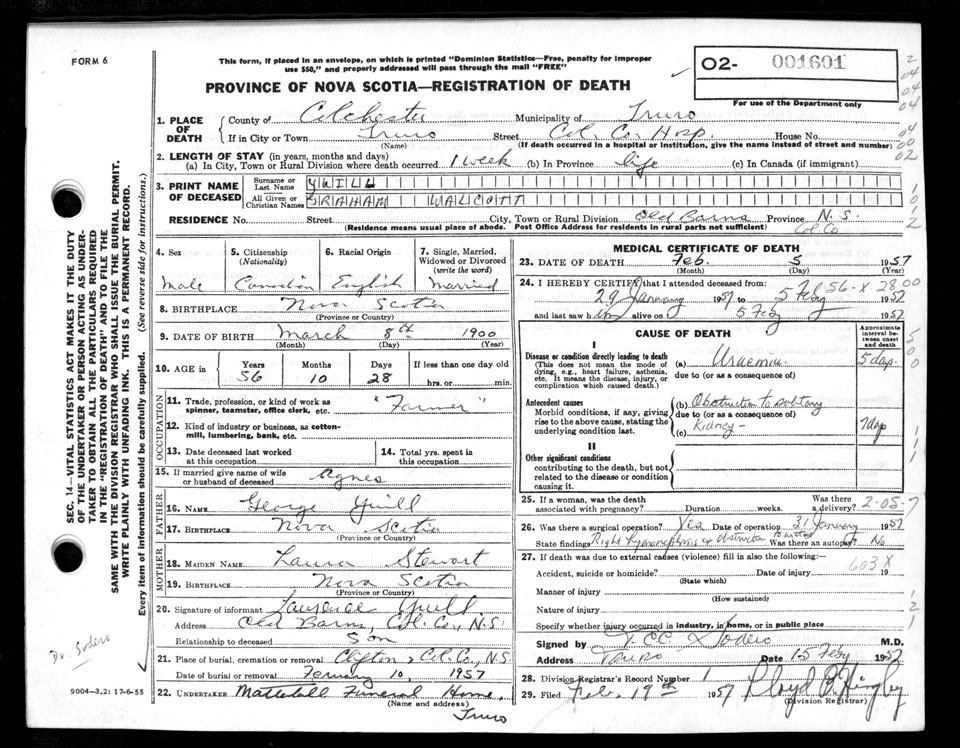 FORM 6
This form, if placed in an envelope, on which is printed "Dominion Statistics—Free, penalty for improper
use $50," and properly addressed will pass through the mail "FREE"
PROVINCE OF NOVA SCOTIA—REGISTRATION OF DEATH
02- 001601
For use of the Department only
2 04 04 04
04 00 02
1. PLACE OF DEATH
County of Colchester Municipality of Truro
If in City or Town Truro Street Col. Co. Hosp. House No.
(Name) (If death occurred in a hospital or institution, give the name instead of street and number)
2. LENGTH OF STAY (in years, months and days)
(a) In City, Town or Rural Division where death occurred 1 week (b) In Province life (c) In Canada (if immigrant)
3. PRINT NAME OF DECEASED
Surname or Last Name YUILL
All Given or Christian Names GRAHAM WALCOTT
RESIDENCE No. Street City, Town or Rural Division Old Barns Province N.S.
(Residence means usual place of abode. Post Office Address for residents in rural parts not sufficient) Col Co
4. Sex Male
5. Citizenship (Nationality) Canadian
6. Racial Origin English
7. Single, Married, Widowed or Divorced (write the word) Married
8. BIRTHPLACE Nova Scotia
(Province or Country)
9. DATE OF BIRTH March 8th 1900
(Month) (Day) (Year)
10. AGE IN Years 56 Months 10 Days 28 If less than one day old hrs. or min.
OCCUPATION
11. Trade, profession, or kind of work as spinner, teamster, office clerk, etc. "Farmer"
12. Kind of industry or business, as cotton-mill, lumbering, bank, etc.
13. Date deceased last worked at this occupation
14. Total yrs. spent in this occupation
15. If married give name of wife or husband of deceased Agnes
FATHER
16. NAME George Yuill
17. BIRTHPLACE Nova Scotia
(Province or Country)
MOTHER
18. MAIDEN NAME Laura Stewart
19. BIRTHPLACE Nova Scotia
(Province or Country)
20. Signature of informant Laurence Yuill
Address Old Barns, Col. Co., N.S.
Relationship to deceased Son
21. Place of burial, cremation or removal Clifton, Col. Co., N.S.
Date of burial or removal February 10, 1957
22. UNDERTAKER Mattatall Funeral Home,
(Name and address) Truro
MEDICAL CERTIFICATE OF DEATH
23. DATE OF DEATH Feb. 5 1957
(Month) (Day) (Year)
24. I HEREBY CERTIFY that I attended deceased from:
56-X 28.00
29 January 1957 to 5 Feby 1957
and last saw him alive on 5 Feby 1957
CAUSE OF DEATH
Approximate interval between onset and death
I
Disease or condition directly leading to death
(This does not mean the mode of dying, e.g., heart failure, asthenia, etc. It means the disease, injury, or complication which caused death.)
(a) Uraemia 5 days.
due to (or as a consequence of)
Antecedent causes
Morbid conditions, if any, giving rise to the above cause, stating the underlying condition last.
(b) Obstruction to solitary
due to (or as a consequence of)
(c) Kidney - 7 days
II
Other significant conditions
contributing to the death, but not related to the disease or condition causing it.
25. If a woman, was the death associated with pregnancy? Duration weeks. Was there a delivery?
2-05-7
26. Was there a surgical operation? Yes Date of operation 31 January 1957
State findings Right hydronephrosis & obstruction to ureter Was there an autopsy? No
27. If death was due to external causes (violence) fill in also the following:—
603X
Accident, suicide or homicide? Date of injury 19
(State which)
Manner of injury
(How sustained)
Nature of injury
Specify whether injury occurred in industry, in home, or in public place
Signed by Sodero M.D.
Address Truro Date 15 Feby 1957
28. Division Registrar's Record Number 1
29. Filed Feb. 19th 1957 Lloyd
(Division Registrar)
SEC. 14—VITAL STATISTICS ACT MAKES IT THE DUTY
OF THE UNDERTAKER OR PERSON ACTING AS UNDER-
TAKER TO OBTAIN ALL THE PARTICULARS REQUIRED
IN THE "REGISTRATION OF DEATH" AND TO FILE THE
SAME WITH THE DIVISION REGISTRAR WHO SHALL ISSUE THE BURIAL PERMIT.
WRITE PLAINLY WITH UNFADING INK. THIS IS A PERMANENT RECORD.
Every item of information should be carefully supplied. (See reverse side for instructions.)
Dr. Sodero
9004-3.2: 17-6-55